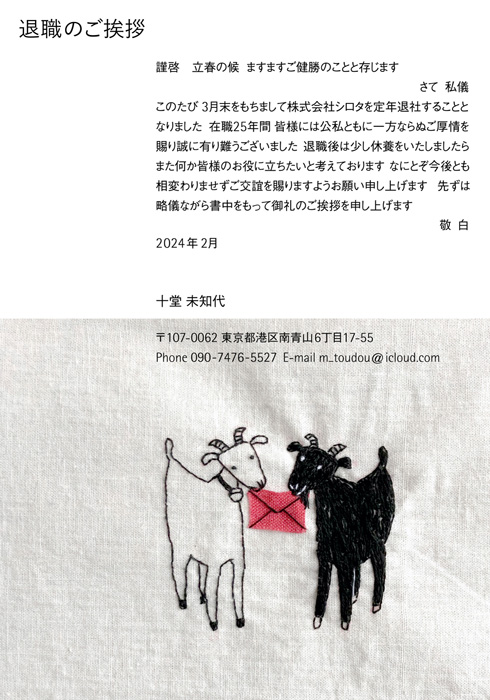 退職のご挨拶
謹啓　立春の候 ますますご健勝のことと存じます
さて 私儀
このたび 3月末をもちまして株式会社シロタを定年退社することと
なりました 在職25年間 皆様には公私ともに一方ならぬご厚情を
賜り誠に有り難うございました 退職後は少し休養をいたしましたら
また何か皆様のお役に立ちたいと考えております なにとぞ今後とも
相変わりませずご交誼を賜りますようお願い申し上げます　先ずは
略儀ながら書中をもって御礼のご挨拶を申し上げます
敬 白
2024年2月
十堂 未知代
〒107-0062 東京都港区南青山6丁目17-55
Phone 090-7476-5527 E-mail m_toudou@icloud.com